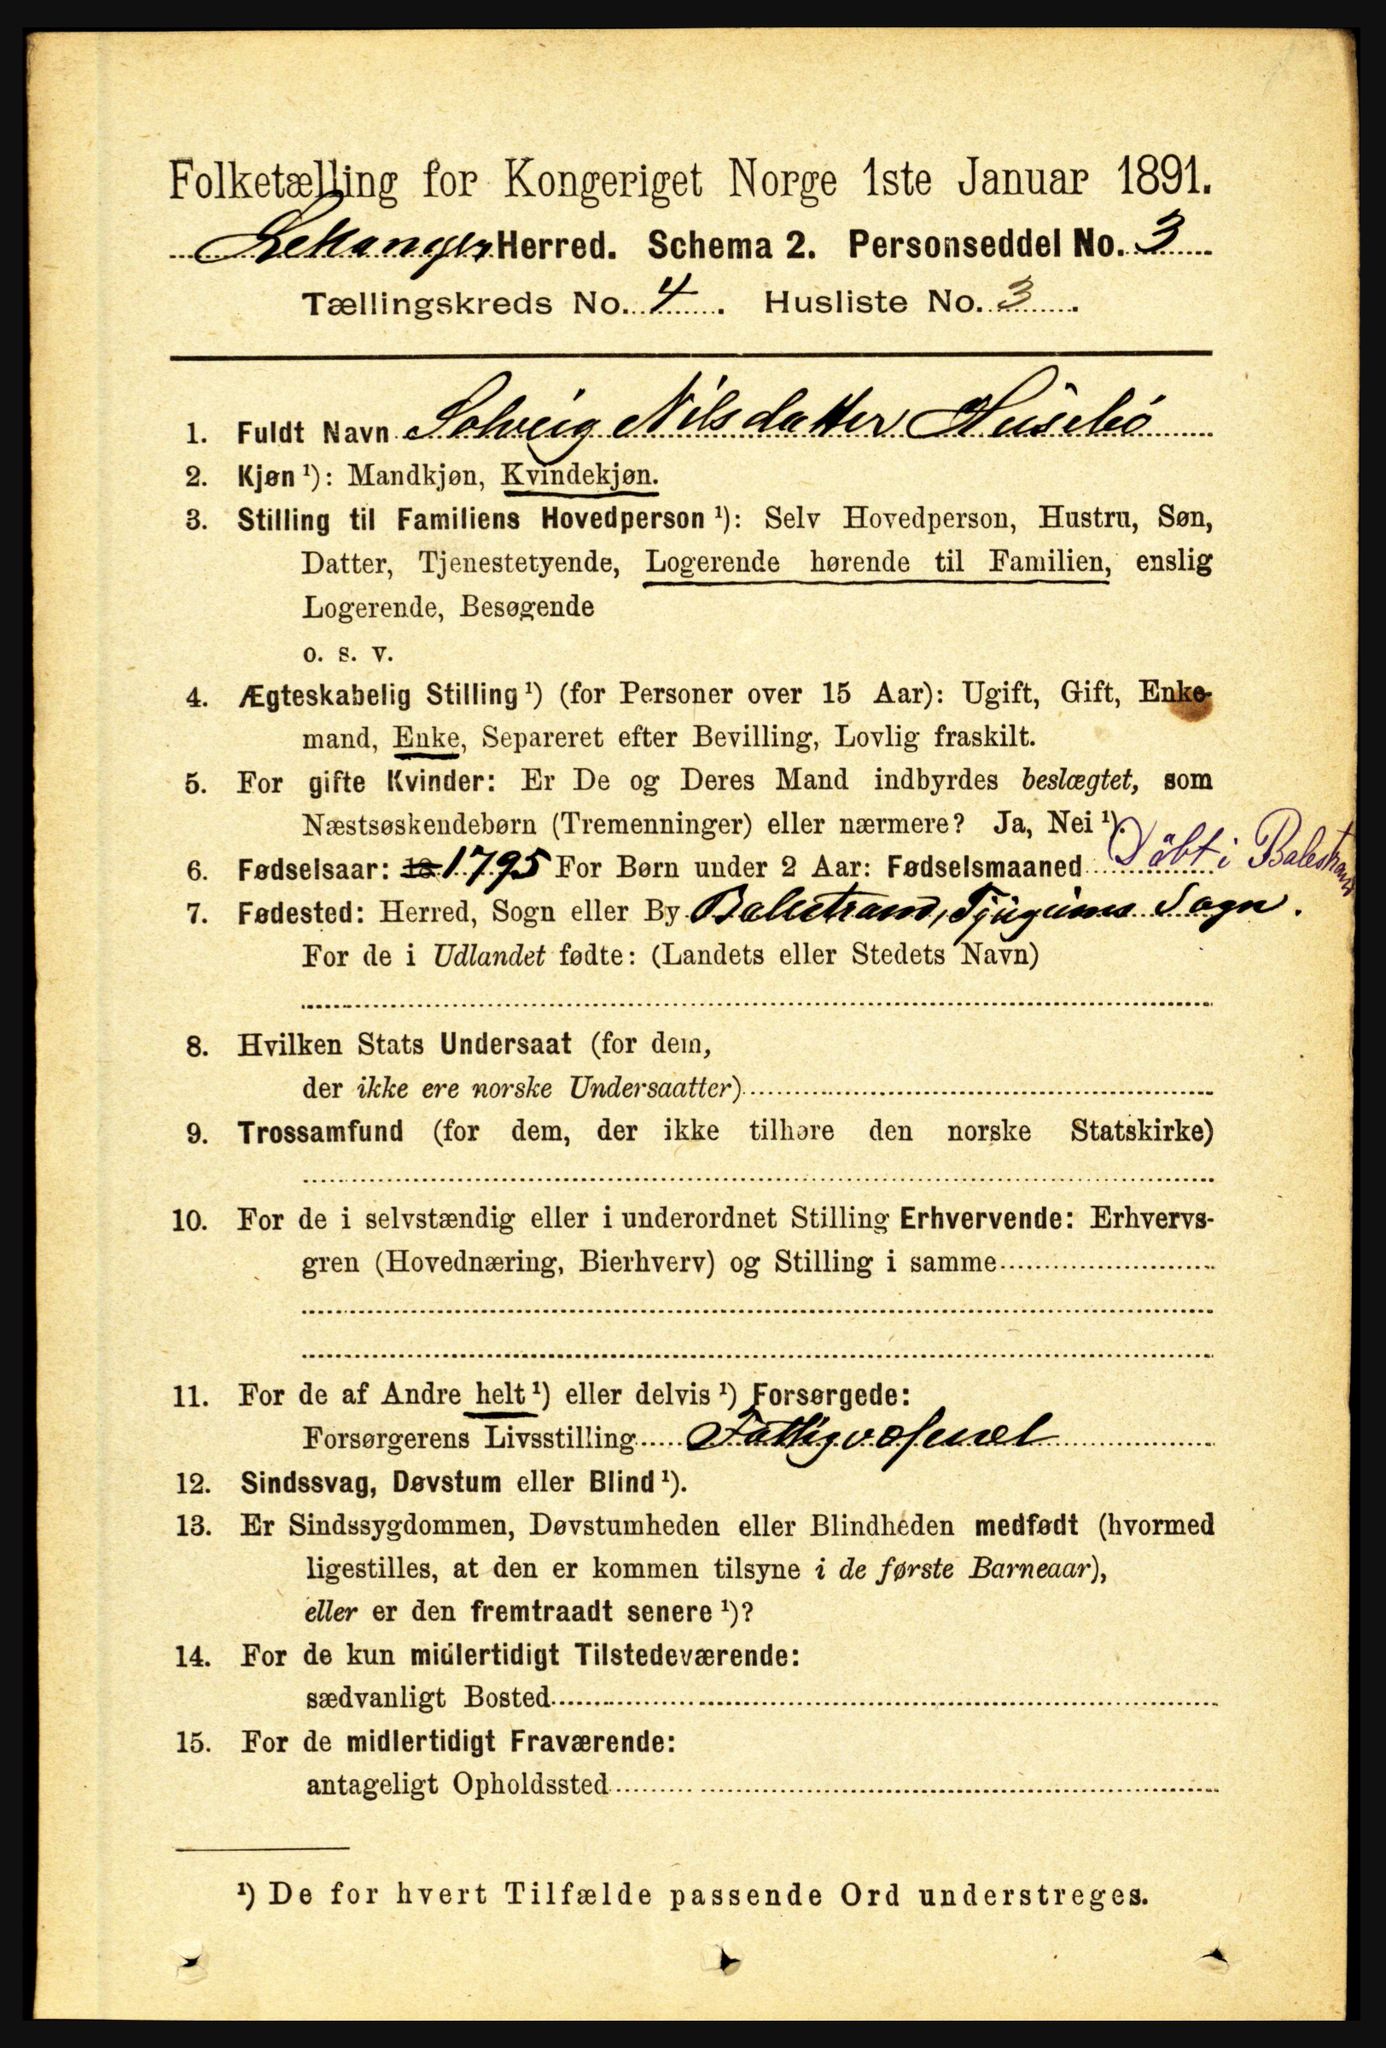 Folketælling for Kongeriget Norge 1ste Januar 1891.
Leikanger Herred. Schema 2. Personseddel No. 3
Tællingskreds No. 4. Husliste No. 3.
1. Fuldt Navn Solveig Nilsdatter Husebö
2. Kjøn ¹): Mandkjøn, Kvindekjøn.
3. Stilling til Familiens Hovedperson ¹): Selv Hovedperson, Hustru, Søn,
Datter, Tjenestetyende, Logerende hørende til Familien, enslig
Logerende, Besøgende
o. s. v.
4. Ægteskabelig Stilling ¹) (for Personer over 15 Aar): Ugift, Gift, Enke-
mand, Enke, Separeret efter Bevilling, Lovlig fraskilt.
5. For gifte Kvinder: Er De og Deres Mand indbyrdes beslægtet, som
Næstsøskendebørn (Tremenninger) eller nærmere? Ja, Nei ¹).
6. Fødselsaar: 18 1795 For Børn under 2 Aar: Fødselsmaaned Döbt i Balestrand
7. Fødested: Herred, Sogn eller By Balestrand, Tjugums Sogn.
For de i Udlandet fødte: (Landets eller Stedets Navn)
8. Hvilken Stats Undersaat (for dem,
der ikke ere norske Undersaatter)
9. Trossamfund (for dem, der ikke tilhøre den norske Statskirke)
10. For de i selvstændig eller i underordnet Stilling Erhvervende: Erhvervs-
gren (Hovednæring, Bierhverv) og Stilling i samme
11. For de af Andre helt ¹) eller delvis ¹) Forsørgede:
Forsørgerens Livsstilling Fattigvæsenet
12. Sindssvag, Døvstum eller Blind ¹).
13. Er Sindssygdommen, Døvstumheden eller Blindheden medfødt (hvormed
ligestilles, at den er kommen tilsyne i de første Barneaar),
eller er den fremtraadt senere ¹)?
14. For de kun midlertidigt Tilstedeværende:
sædvanligt Bosted
15. For de midlertidigt Fraværende:
antageligt Opholdssted
¹) De for hvert Tilfælde passende Ord understreges.